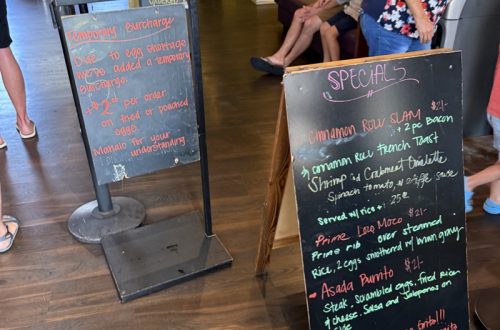 ORDERED
Temporary Surcharge
Due to egg shortage
we've added a temporary
surcharge
+$2 per order
on fried or poached
eggs.
Mahalo for your
understanding
SPECIALS
Cinnamon Roll SLAM $21-
+ 2 pc Bacon
cinnamon Roll French Toast
Shrimp and Crabmeat Omelette
Spinach tomato w/ sauce
Served w/ rice 25
Prime Loco Moco $21-
Prime rib over steamed
Rice, 2 eggs smothered w/ mushroom gravy
Asada Burrito $21-
Steak, scrambled eggs, fried Rice
& cheese. Salsa and Jalapenos on
side